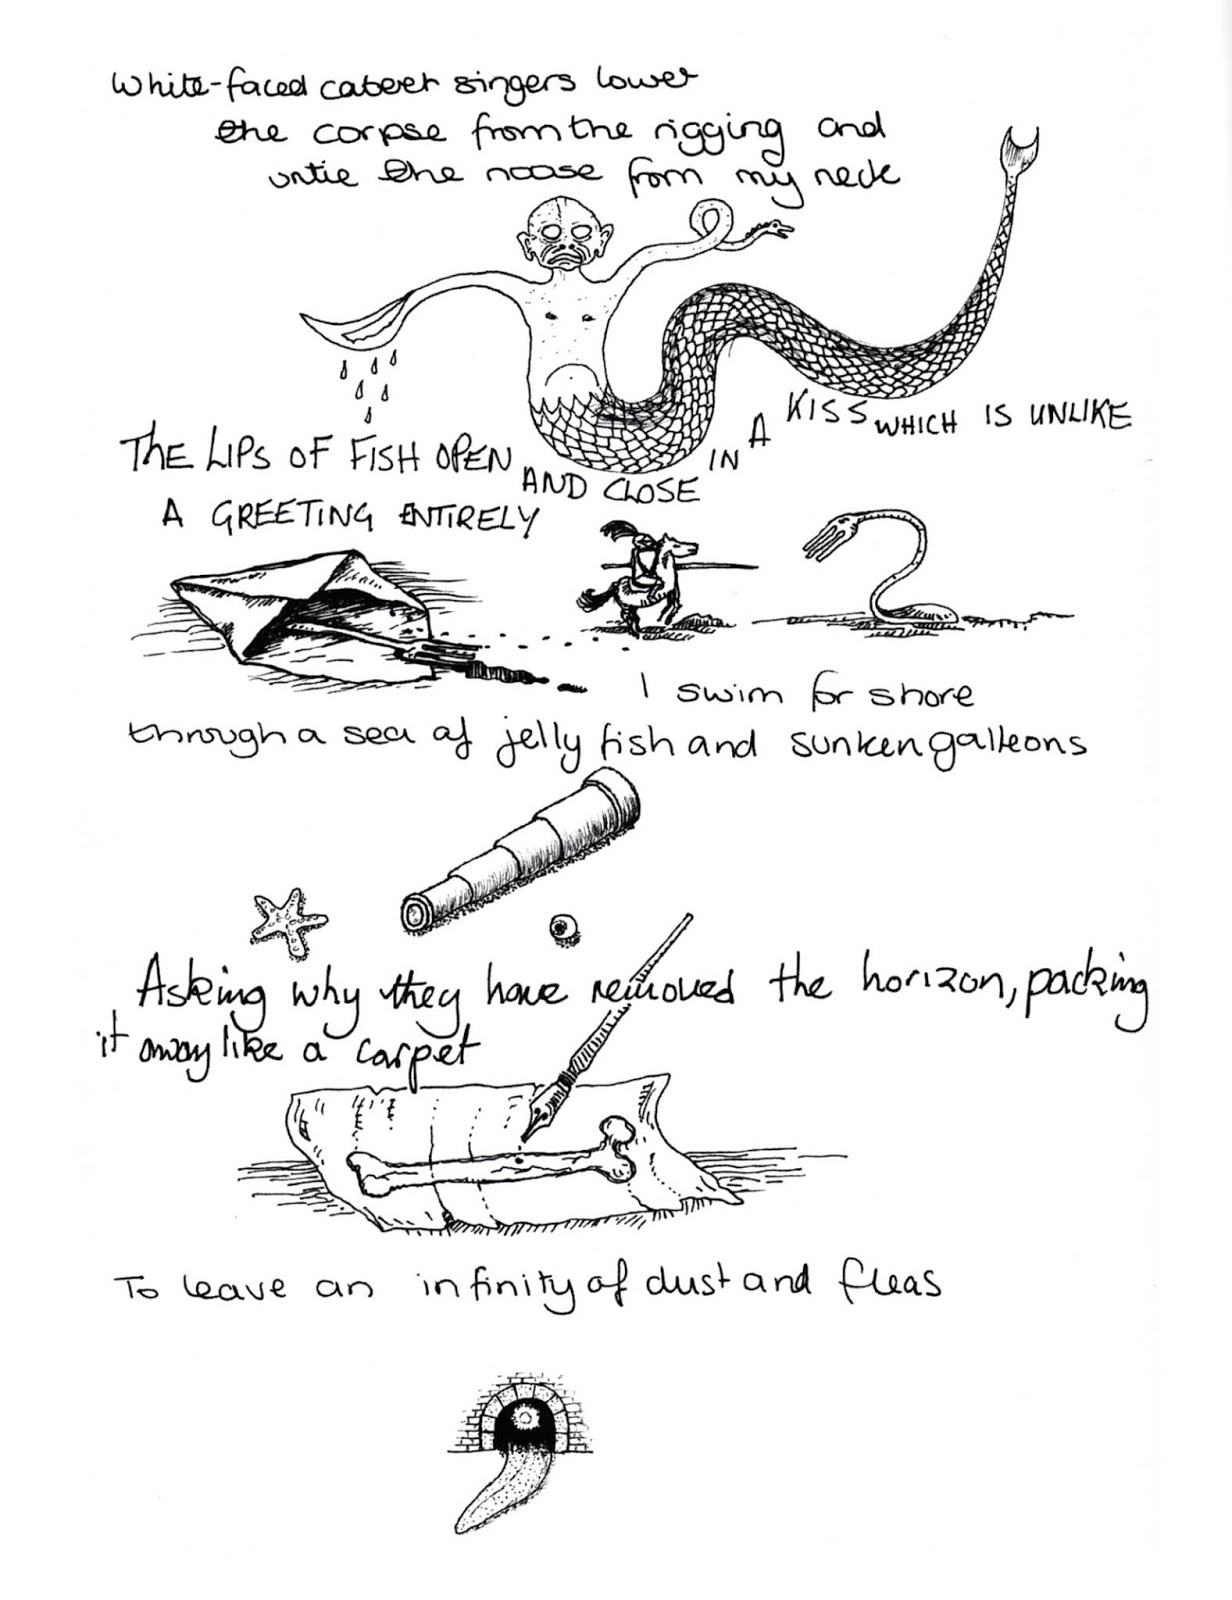 White-faced caberet singers lower
the corpse from the rigging and
untie the noose from my neck
THE LIPS OF FISH OPEN AND CLOSE IN A KISS WHICH IS UNLIKE
A GREETING ENTIRELY
I swim for shore
through a sea of jelly fish and sunken galleons
Asking why they have removed the horizon, packing
it away like a carpet
To leave an infinity of dust and fleas